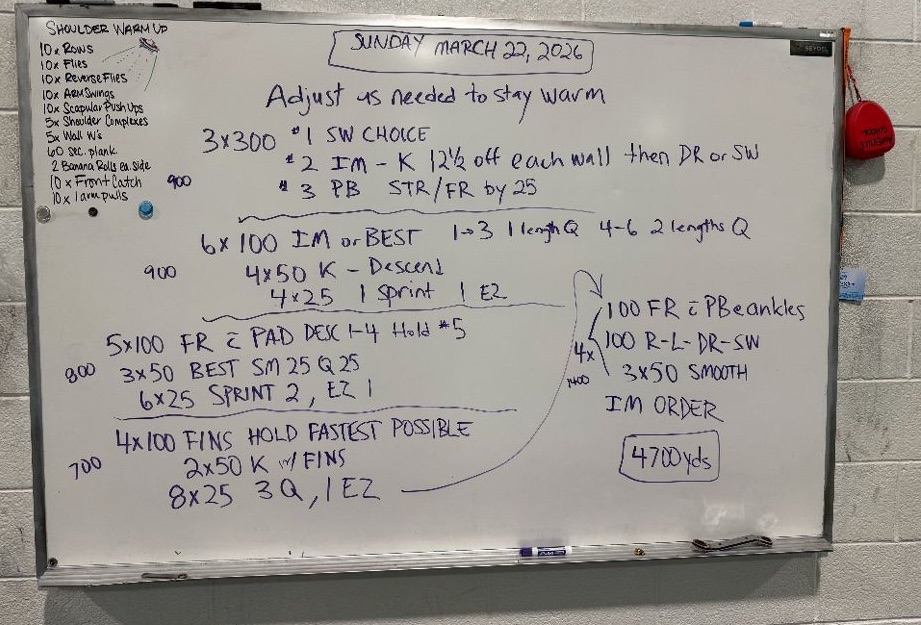 SHOULDER WARM UP
10x Rows
10x Flies
10x Reverse Flies
10x Arm Swings
10x Scapular Push Ups
5x Shoulder Complexes
5x Wall W's
60 sec. plank
2 Banana Rolls ea. side
10 x Front Catch
10x 1 arm pulls
SUNDAY MARCH 22, 2026
Adjust as needed to stay warm
3x300 #1 SW CHOICE
#2 IM - K 12½ off each wall then DR or SW
900 #3 PB STR/FR by 25
6x100 IM or BEST 1→3 1 length Q 4-6 2 lengths Q
900 4x50 K - Descend
4x25 1 Sprint 1 EZ
5x100 FR c̄ PAD DESC 1-4 Hold #5
800 3x50 BEST SM 25 Q 25
6x25 SPRINT 2, EZ 1
4x100 FINS HOLD FASTEST POSSIBLE
700 2x50 K w/ FINS
8x25 3Q, 1 EZ
100 FR c̄ PBeankles
4x 100 R-L-DR-SW
1400 3x50 SMOOTH
IM ORDER
4700yds
SEYDEL
EXPO